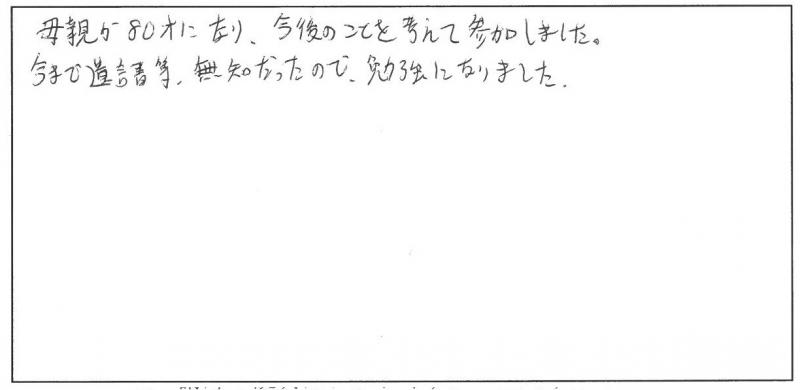 母親が80才になり、今後のことを考えて参加しました。
今まで遺言書等、無知だったので、勉強になりました.